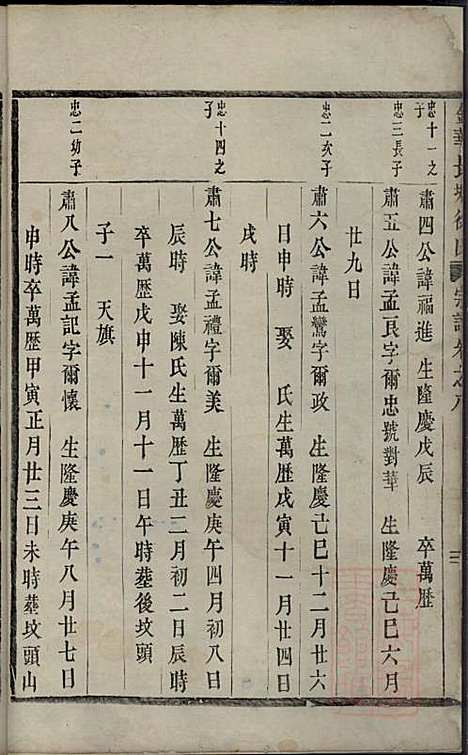 忠十一之
子
肅四公諱福進 生隆慶戊辰 卒萬歷
忠三長子
肅五公諱孟良字爾忠號對華 生隆慶己巳六月
廿九日
忠二次子
肅六公諱孟鸞字爾政 生隆慶己巳十二月廿六
日申時 娶 氏生萬歷戊寅十一月廿四日
戌時
忠十四之
子
肅七公諱孟禮字爾美 生隆慶庚午四月初八日
辰時 娶陳氏生萬歷丁丑二月初二日辰時
卒萬歷戊申十一月十一日午時塟後坟頭
子一 天旗
忠二幼子
肅八公諱孟記字爾懷 生隆慶庚午八月廿七日
申時卒萬歷甲寅正月廿三日未時塟坟頭山